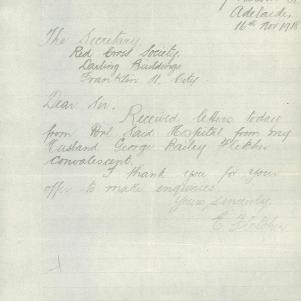 Adelaide,
16th Nov 1915
The Secretary
Red Cross Society,
Darling Buildings
Franklin St. City
Dear Sir,
Received letters today
from Port Said Hospital from my
Husband George Bailey Fletcher
Convalescent.
I thank you for your
offer to make enquiries
Yours, sincerely,
E. Fletcher